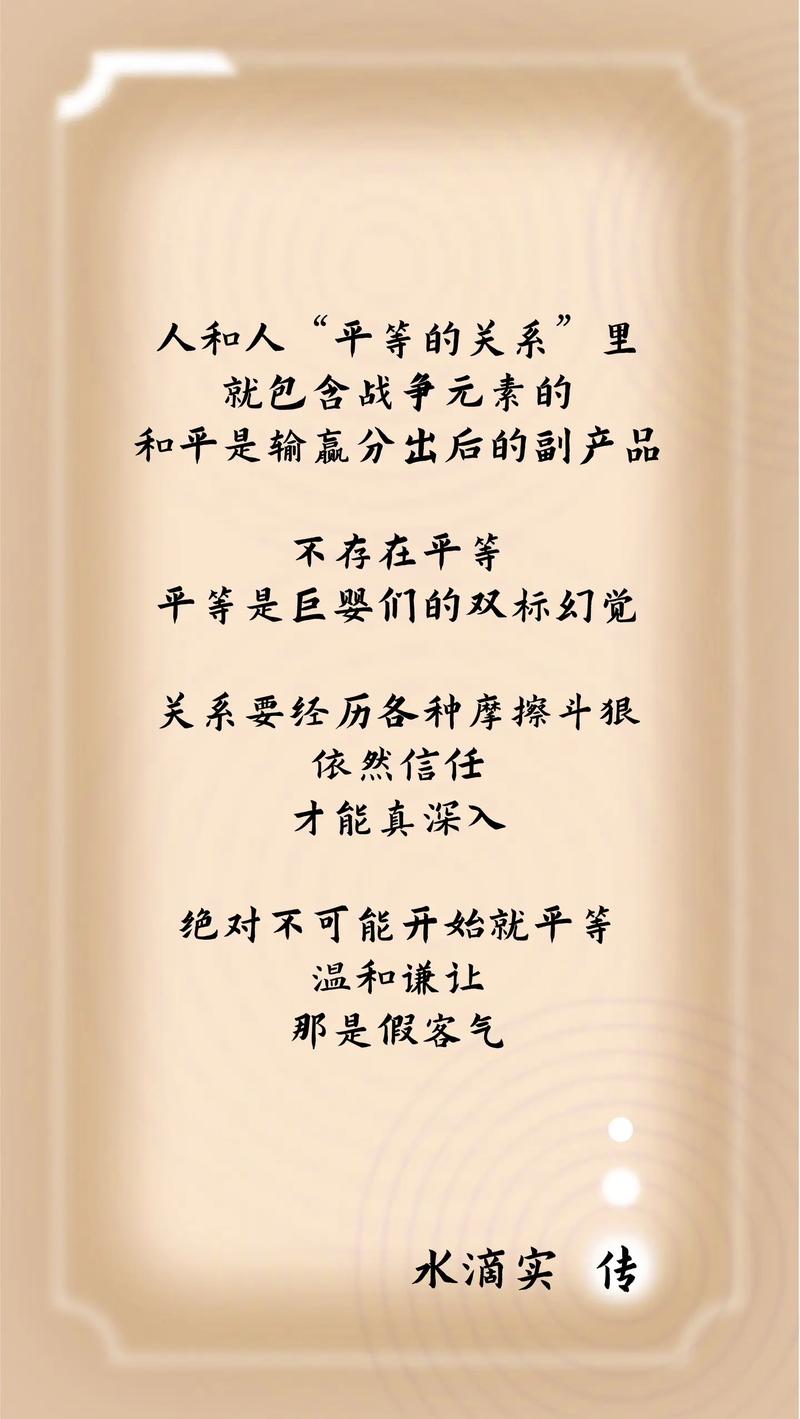 人和人“平等的关系”里
就包含战争元素的
和平是输赢分出后的副产品
不存在平等
平等是巨婴们的双标幻觉
关系要经历各种摩擦斗狠
依然信任
才能真深入
绝对不可能开始就平等
温和谦让
那是假客气
水滴实 传